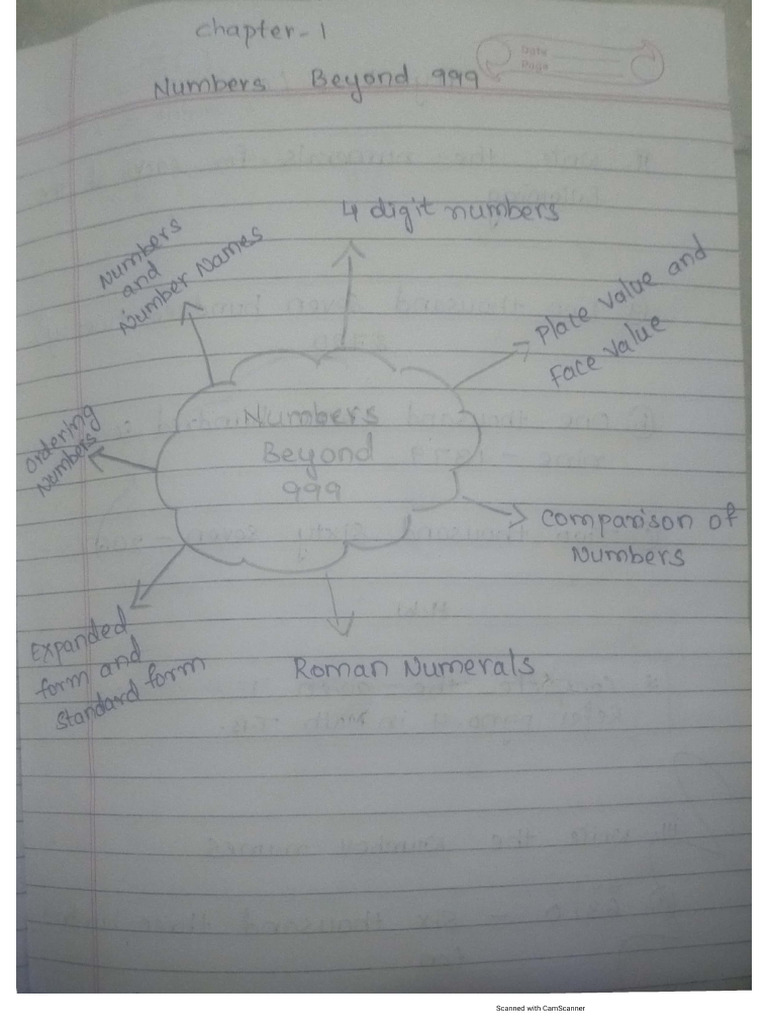 Chapter-1
Date
Page
Numbers Beyond 999
4 digit numbers
Numbers
and
Number Names
Place Value and
Face Value
Ordering
Numbers
Numbers
Beyond
999
Comparison of
Numbers
Expanded
form and
Standard form
Roman Numerals
Scanned with CamScanner